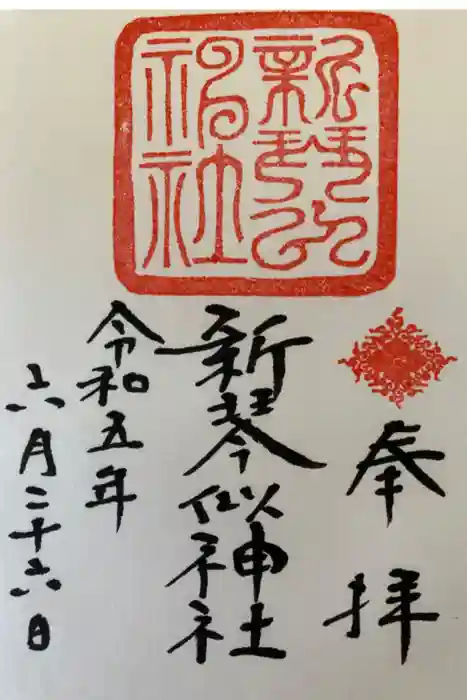 奉拝
新琴似神社
令和五年
六月二十六日
新琴似
神社